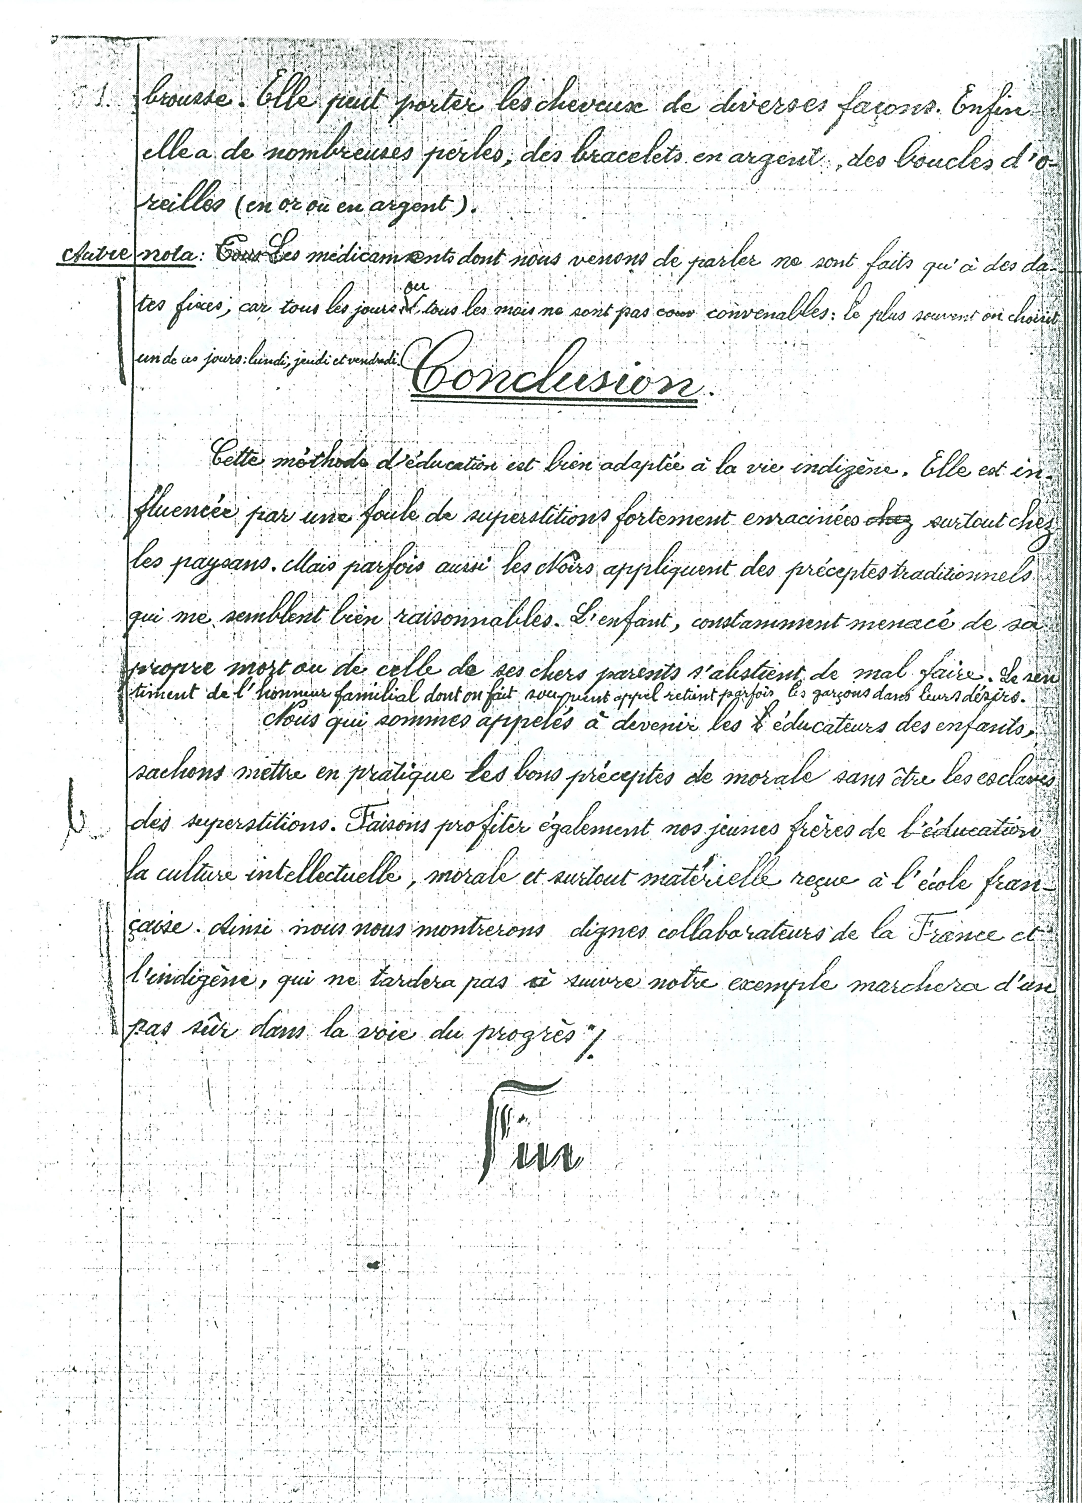 51. brousse. Elle peut porter les cheveux de diverses façons. Enfin
elle a de nombreuses perles, des bracelets en argent, des boucles d'o-
reilles (en or ou en argent).
Autre nota : Tous Les médicaments dont nous venons de parler ne sont faits qu'à des da-
tes fixes; car tous les jours ou tous les mois ne sont pas cour convenables : le plus souvent on choisit
un de ces jours : lundi, jeudi et vendredi.
Conclusion.
Cette méthode d'éducation est bien adaptée à la vie indigène. Elle est in-
fluencée par une foule de superstitions fortement enracinées chez surtout chez
les paysans. Mais parfois aussi les Noirs appliquent des préceptes traditionnels
qui me semblent bien raisonnables. L'enfant, constamment menacé de sa
propre mort ou de celle de ses chers parents s'abstient de mal faire. Le sen
timent de l'honneur familial dont on fait souvent appel retient parfois les garçons dans leurs désirs.
Nous qui sommes appelés à devenir les éducateurs des enfants,
sachons mettre en pratique les bons préceptes de morale sans être les esclaves
des superstitions. Faisons profiter également nos jeunes frères de l'éducation
la culture intellectuelle, morale et surtout matérielle reçue à l'école fran-
çaise. Ainsi nous nous montrerons dignes collaborateurs de la France et
l'indigène, qui ne tardera pas à suivre notre exemple marchera d'un
pas sûr dans la voie du progrès ./.
Fin